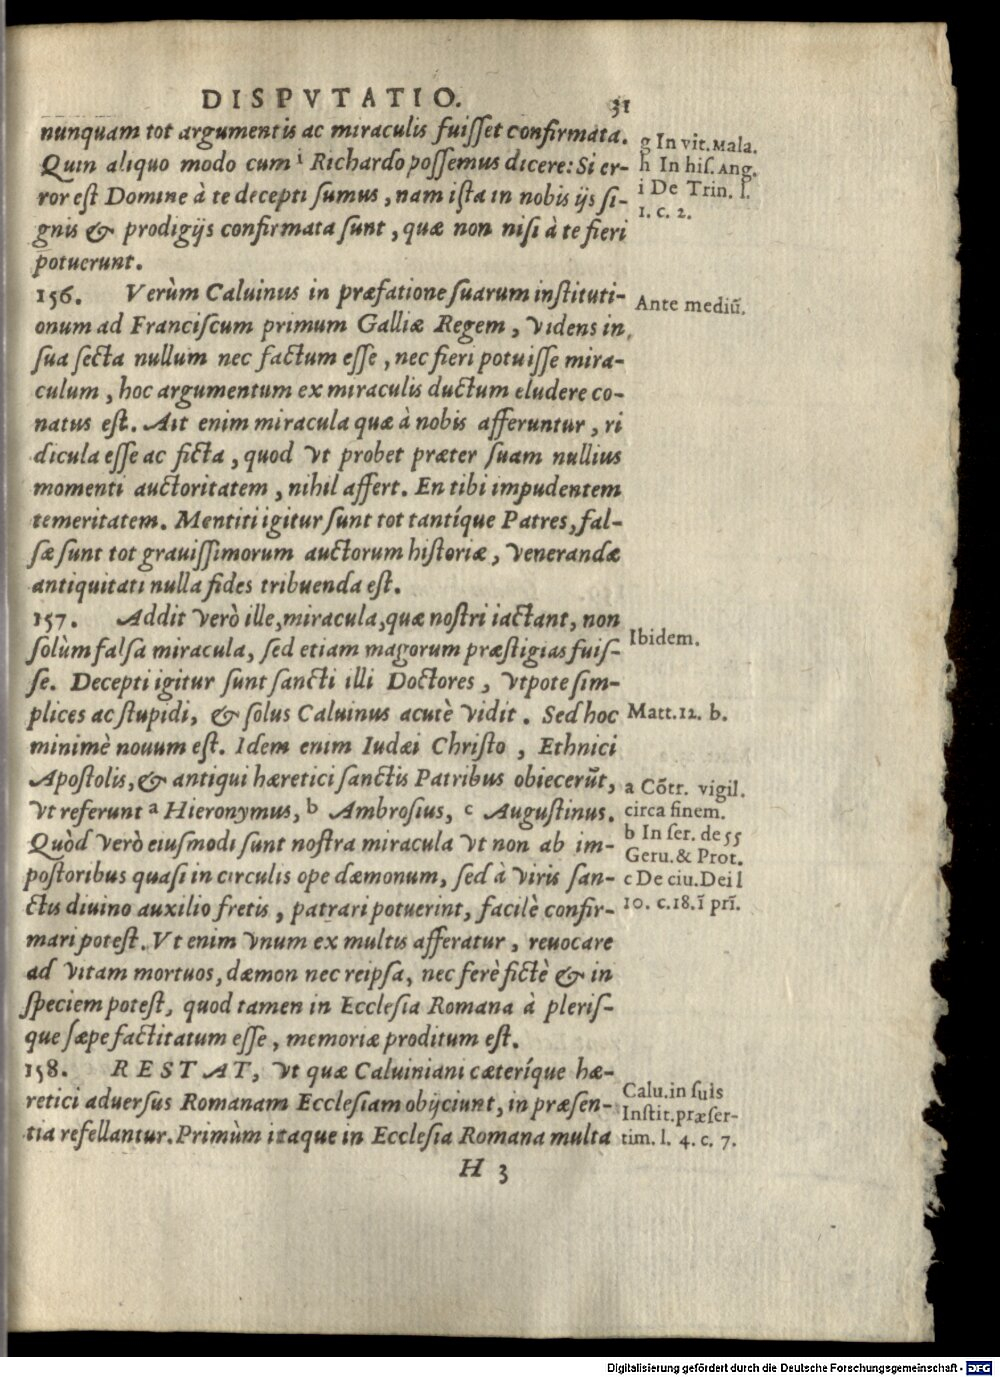 DISPVTATIO. 31
nunquam tot argumentis ac miraculis fuisset confirmata.
Quin aliquo modo cum i Richardo possemus dicere: Si er-
ror est Domine à te decepti sumus, nam ista in nobis ijs si-
gnis & prodigijs confirmata sunt, quæ non nisi à te fieri
potuerunt.
g In vit. Mala.
h In his. Ang.
i De Trin. l.
1. c. 2.
156. Verùm Caluinus in præfatione suarum instituti-
onum ad Franciscum primum Galliæ Regem, videns in
sua secta nullum nec factum esse, nec fieri potuisse mira-
culum, hoc argumentum ex miraculis ductum eludere co-
natus est. Ait enim miracula quæ à nobis afferuntur, ri
dicula esse ac ficta, quod vt probet præter suam nullius
momenti auctoritatem, nihil affert. En tibi impudentem
temeritatem. Mentiti igitur sunt tot tantíque Patres, fal-
sæ sunt tot grauissimorum auctorum historiæ, venerandæ
antiquitati nulla fides tribuenda est.
Ante mediũ.
157. Addit verò ille, miracula, quæ nostri iactant, non
solùm falsa miracula, sed etiam magorum præstigias fuis-
se. Decepti igitur sunt sancti illi Doctores, vtpote sim-
plices ac stupidi, & solus Caluinus acutè vidit. Sed hoc
minimè nouum est. Idem enim Iudæi Christo, Ethnici
Apostolis, & antiqui hæretici sanctis Patribus obiecerũt,
vt referunt a Hieronymus, b Ambrosius, c Augustinus.
Quòd verò eiusmodi sunt nostra miracula vt non ab im-
postoribus quasi in circulis ope dæmonum, sed à viris san-
ctis diuino auxilio fretis, patrari potuerint, facilè confir-
mari potest. Vt enim vnum ex multis afferatur, reuocare
ad vitam mortuos, dæmon nec reipsa, nec ferè fictè & in
speciem potest, quod tamen in Ecclesia Romana à pleris-
que sæpe factitatum esse, memoriæ proditum est.
Ibidem.
Matt. 12. b.
a Cõtr. vigil.
circa finem.
b In ser. de ss
Geru. & Prot.
c De ciu. Dei l
10. c. 18. ĩ prĩ.
158. RESTAT, vt quæ Caluiniani cæteríque hæ-
retici aduersus Romanam Ecclesiam obijciunt, in præsen-
tia refellantur. Primùm itaque in Ecclesia Romana multa
Calu. in suis
Instit. præser-
tim. l. 4. c. 7.
H 3
Digitalisierung gefördert durch die Deutsche Forschungsgemeinschaft - DFG